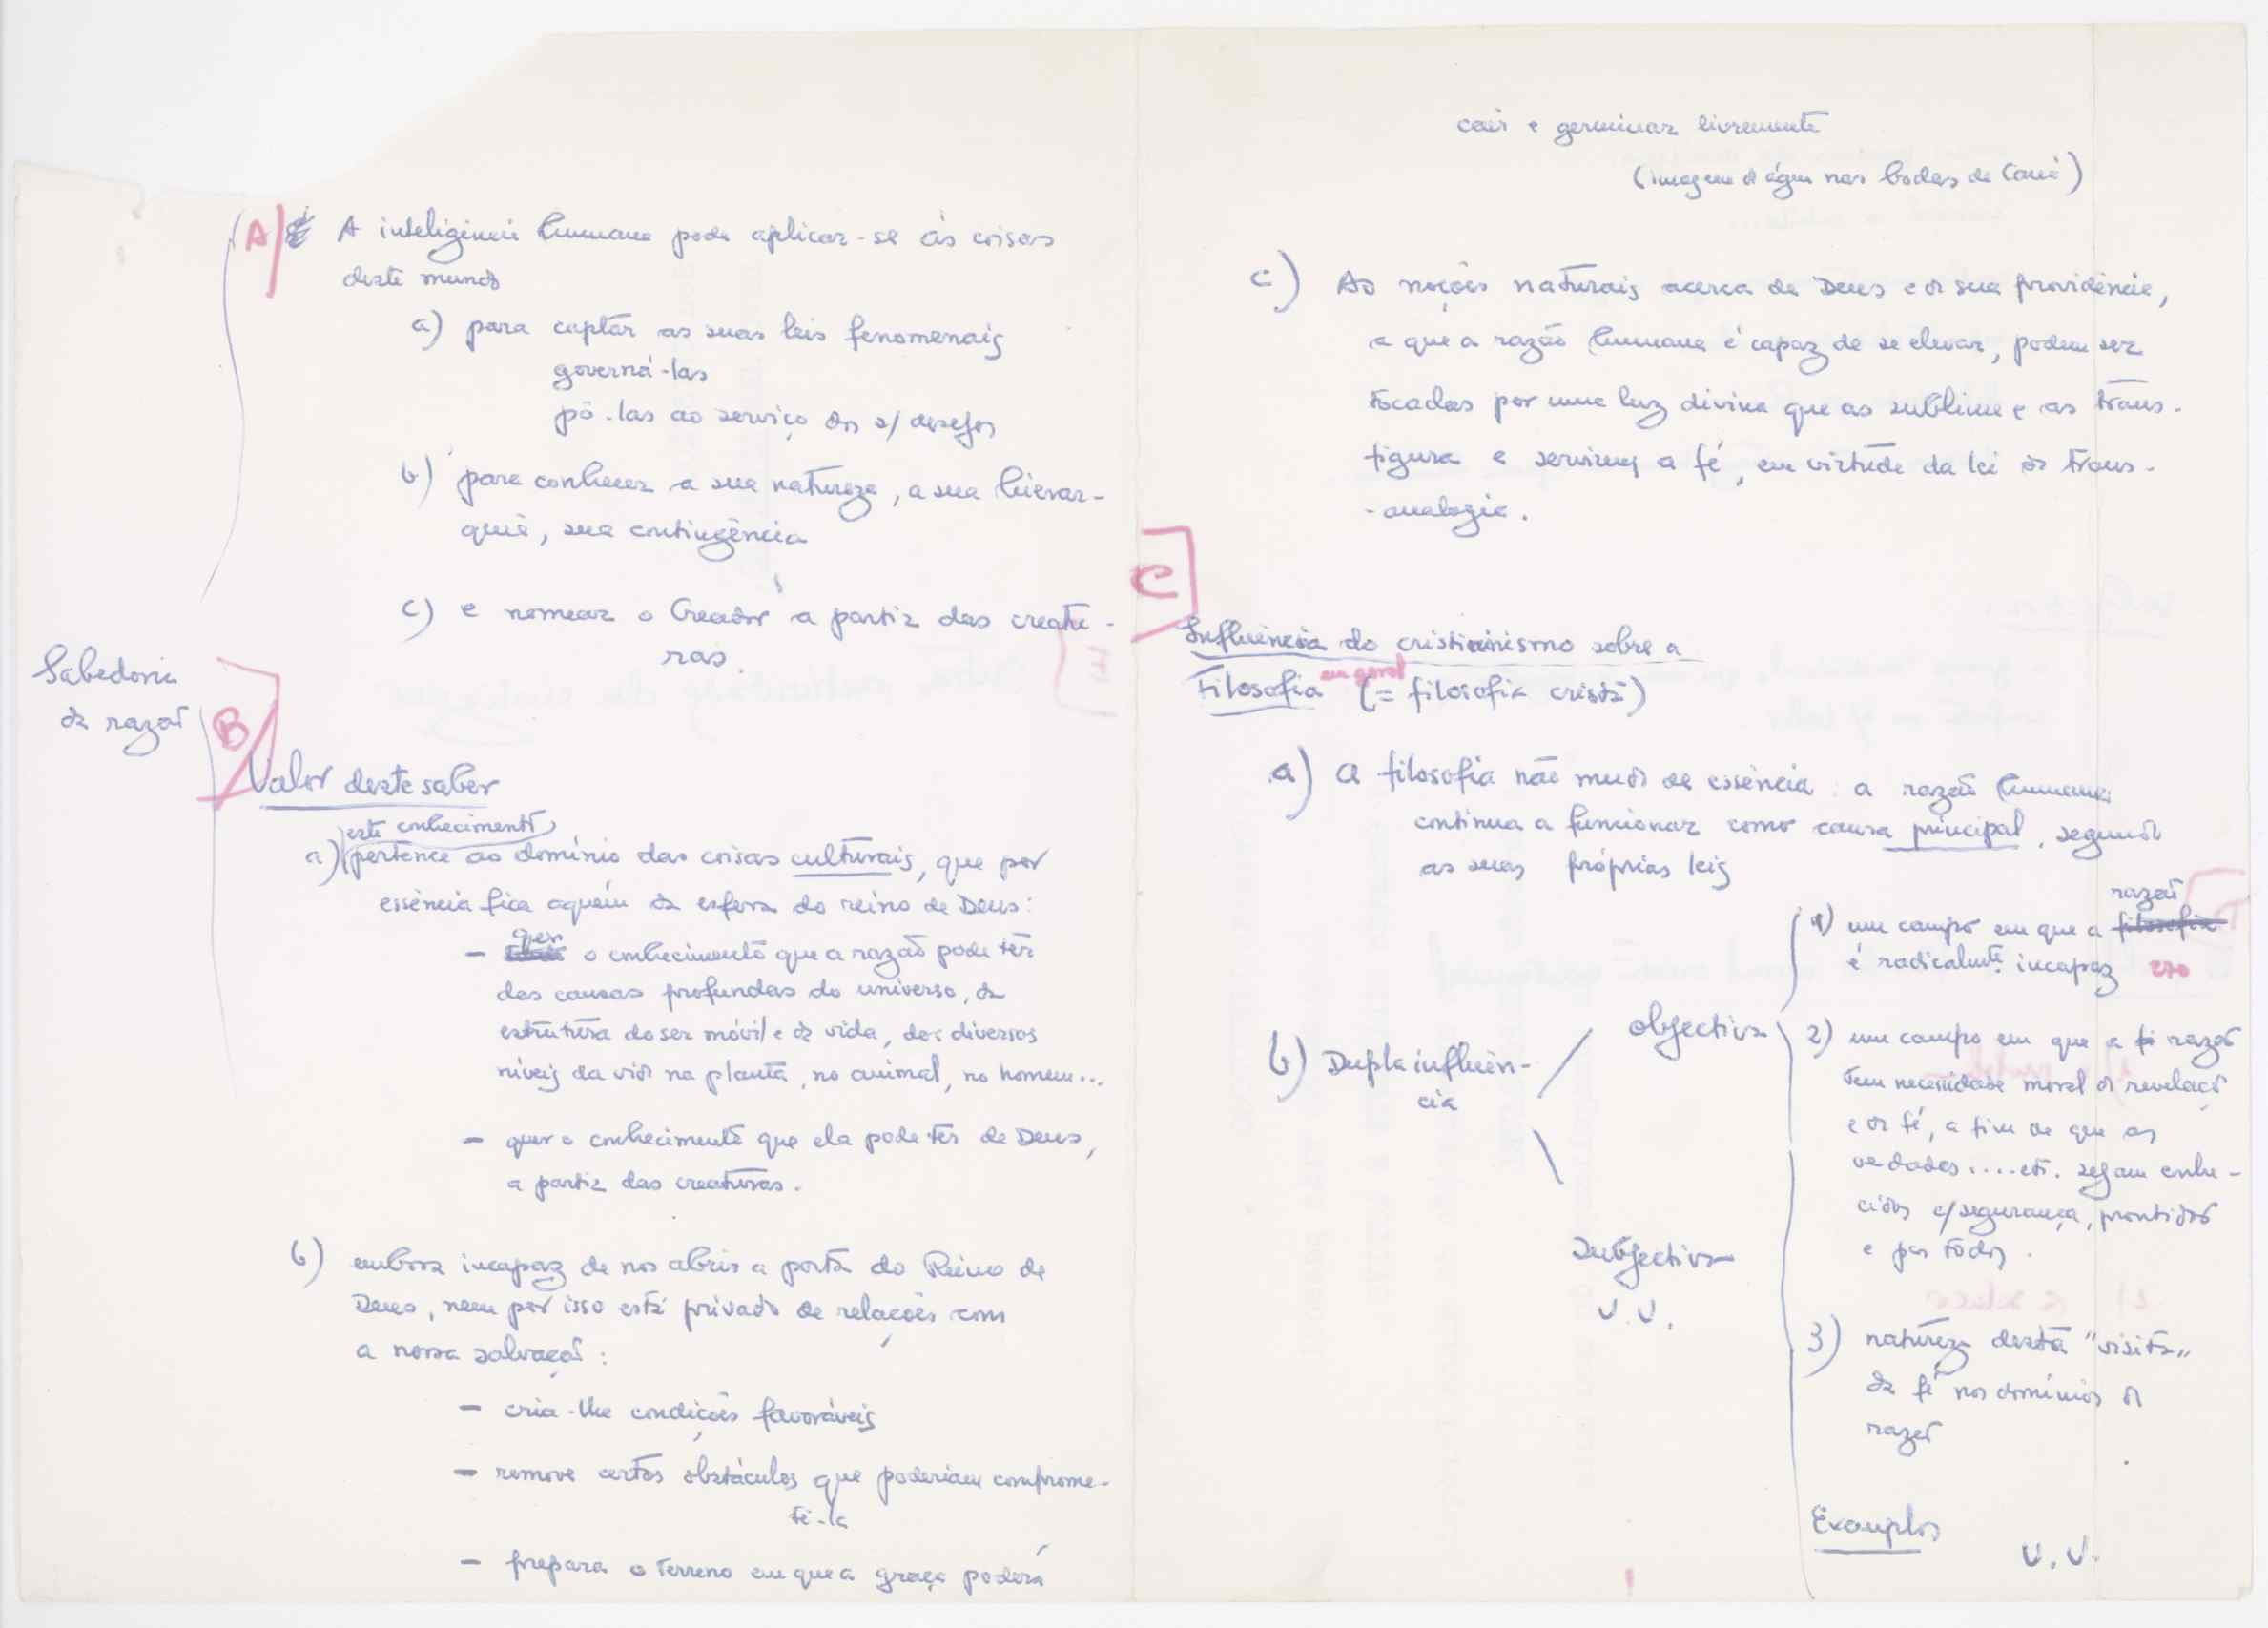 A/ A inteligência humana pode aplicar-se às coisas
deste mundo
a) para captar as suas leis fenomenais
governá-las
pô-las ao serviço dos s/ desejos
b) para conhecer a sua natureza, a sua hierar-
quia, sua contingência
c) e nomear o Creador a partir das creatu-
ras.
Sabedoria
da razão
B/
Valor deste saber
este conhecimento
a) pertence ao domínio das coisas culturais, que por
essência fica aquém da esfera do reino de Deus:
quer
- o conhecimento que a razão pode ter
das causas profundas do universo, da
estrutura do ser móvil e da vida, dos diversos
níveis da vida na planta, no animal, no homem...
- quer o conhecimento que ela pode ter de Deus,
a partir das creaturas.
b) embora incapaz de nos abrir a porta do Reino de
Deus, nem por isso está privado de relações com
a nossa salvação:
- cria-lhe condições favoráveis
- remove certos obstáculos que poderiam comprome-
tê-la
- prepara o terreno em que a graça poderá
cair e germinar livremente
(imagem da água nas bodas de Caná)
c) As noções naturais acerca de Deus e da sua providência,
a que a razão humana é capaz de se elevar, podem ser
tocadas por uma luz divina que as sublime e as trans-
figura e servirem a fé, em virtude da lei da trans-
-analogia.
C
Influência do cristianismo sobre a
Filosofia em geral (= filosofia cristã)
a) A filosofia não muda de essência: a razão humana
continua a funcionar como causa principal, segundo
as suas próprias leis
b) Dupla influên-
cia
objectiva
razão
1) um campo em que a filosofia
é radicalmte. incapaz
2) um campo em que a fi razão
tem necessidade moral da revelação
e da fé, a fim de que as
verdades .... etc. sejam conhe-
cidas c/ segurança, prontidão
e por todos.
3) natureza desta "visita"
da fé nos domínios da
razão
Exemplos
V.V.
subjectiva
V.V.